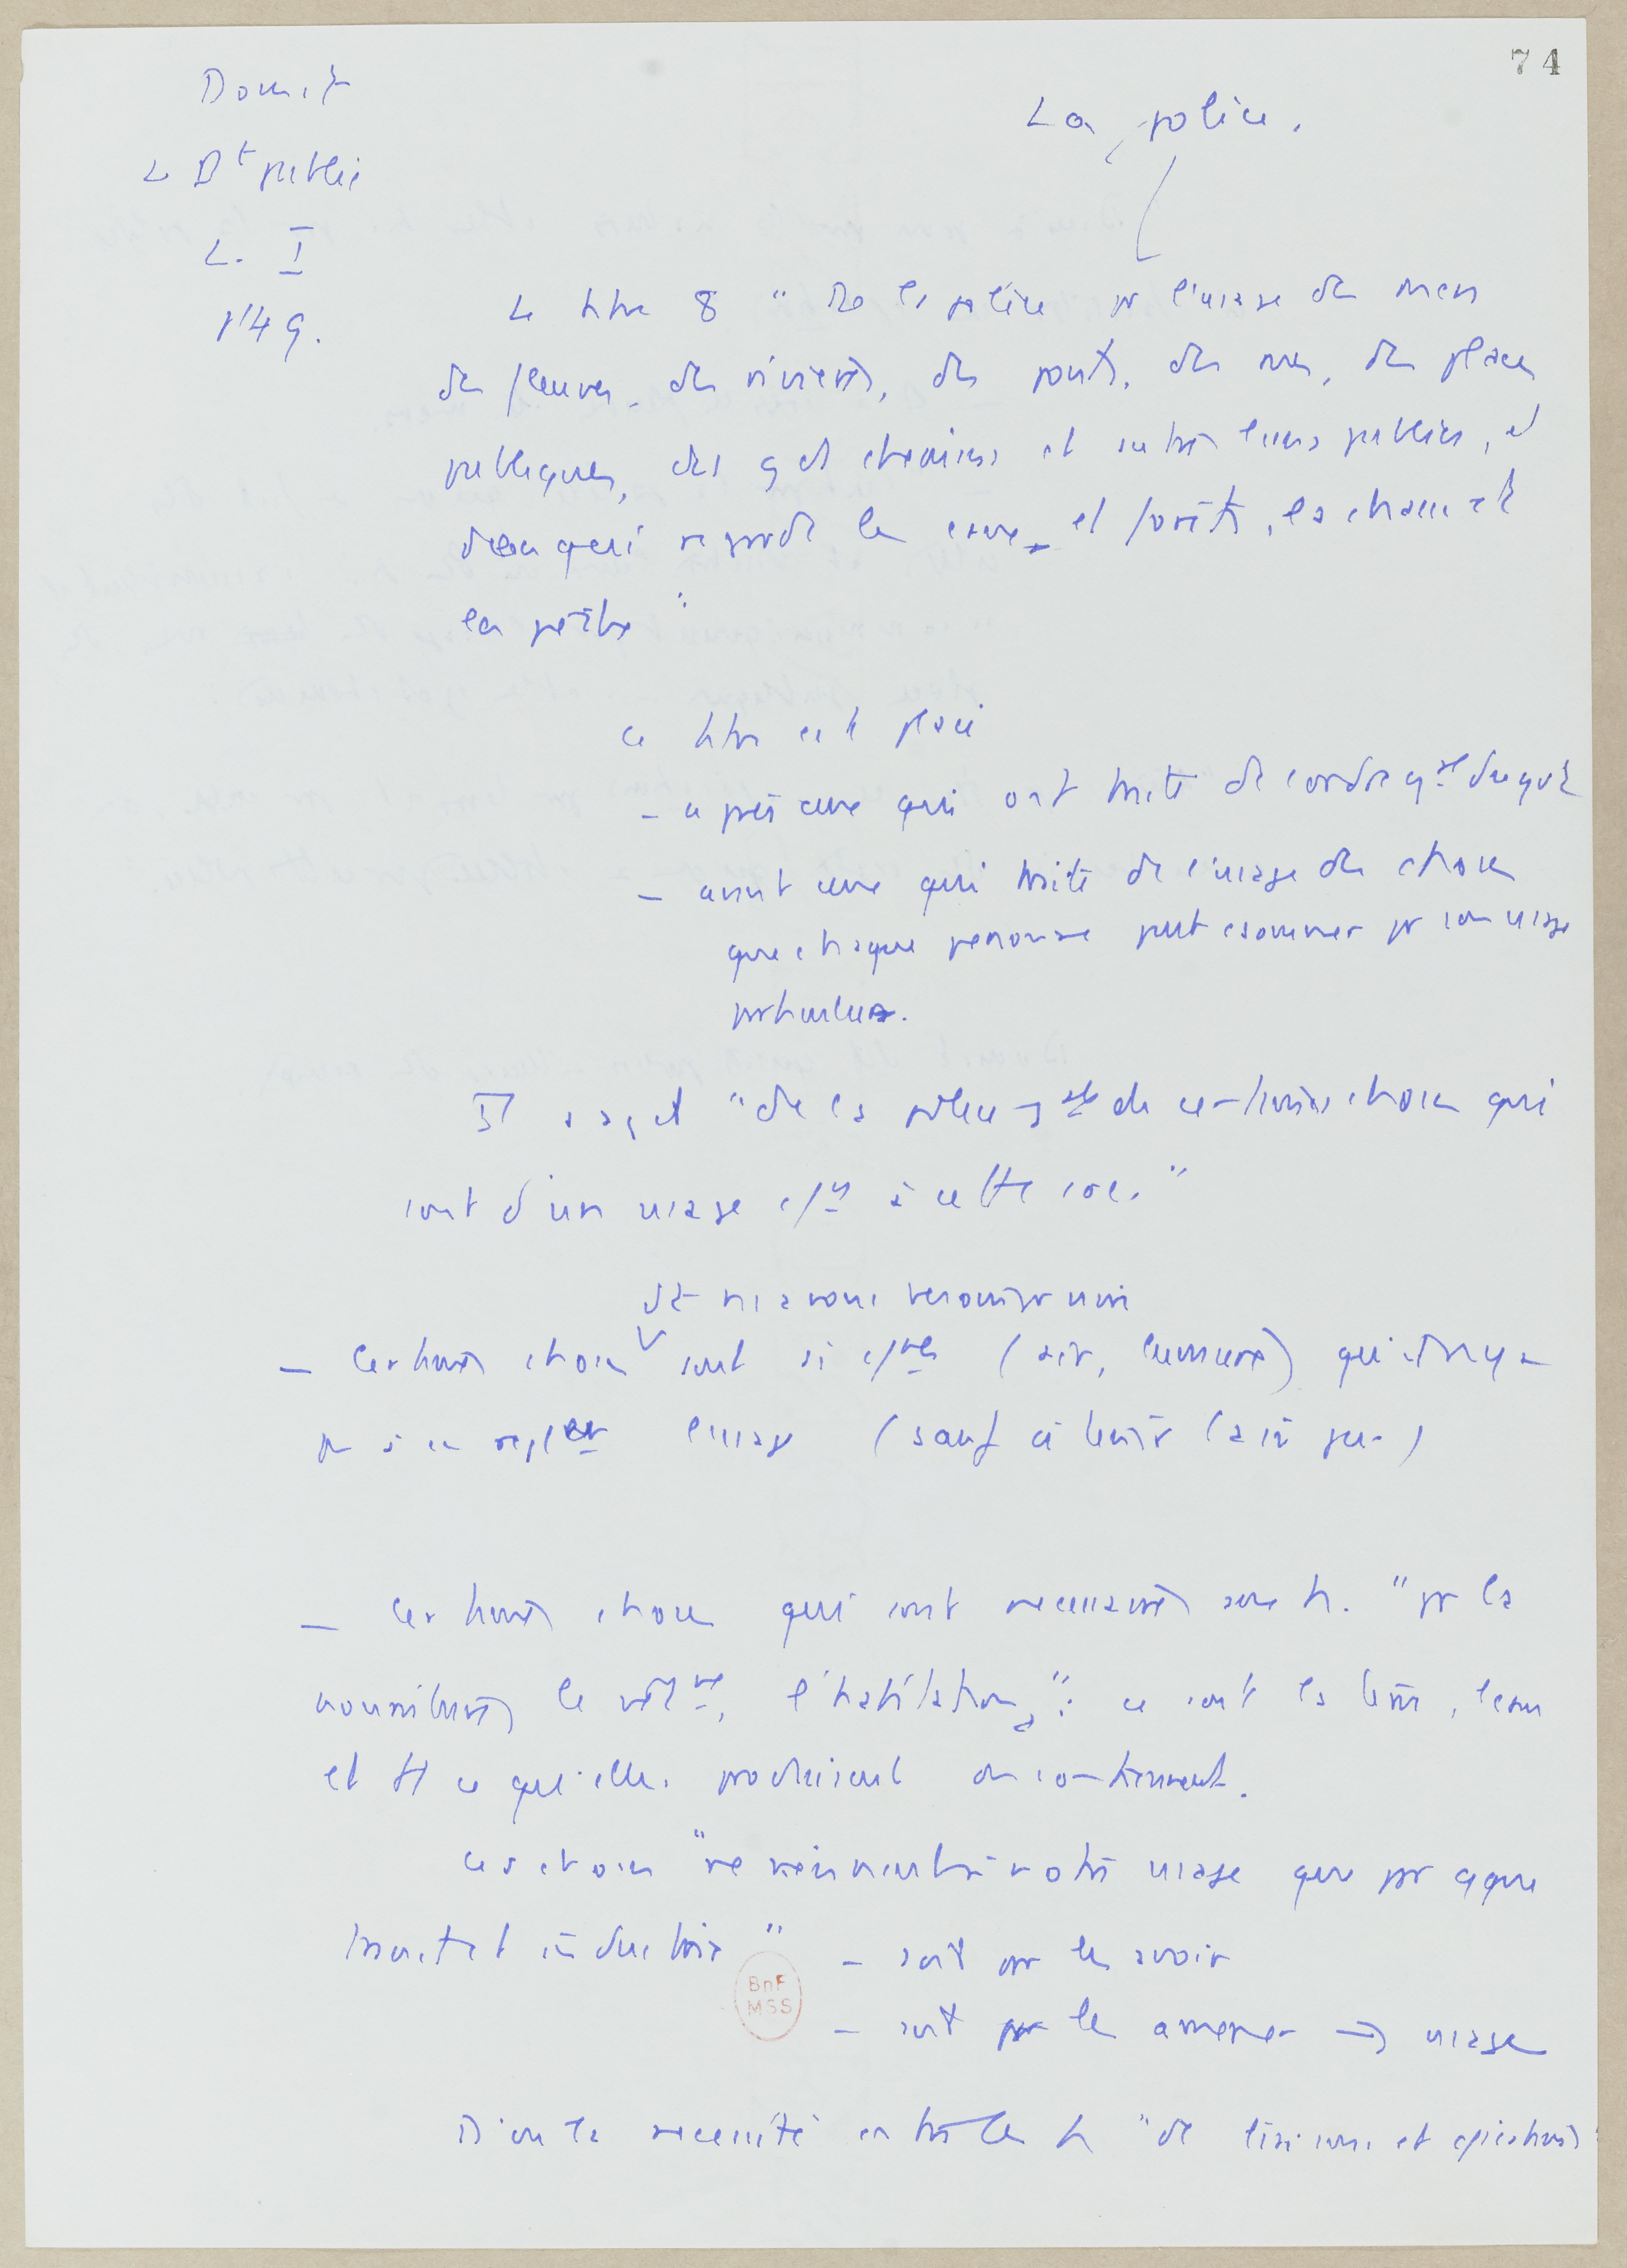 74
Domat
La police.
L. Dt public
L. I
p149.
Le titre 8 "De la police pr l'usage des mers
des fleuves, des rivières, des ponts, des rues, des places
publiques, des gds chemins et autres lieux publics, et
de ce qui regarde les eaux et forêts, la chasse et
la pêche"
Ce titre est placé
- après ceux qui ont traité de l'ordre gal
- avant ceux qui traite de l'usage des choses
que chaque personne peut pr son usage
particulier.
Il s'agit "de la police gale de certaines choses qui
sont d'un usage cn à cette soc."
dt ns avons besoin pr vivre
- Certaines choses sont si cnes (air, lumière) qu'il n'y a
pas à en régler l'usage
- Certaines choses qui sont nécessaires aux h. "pr la
nourriture, le vêtmt, l'habitation": ce sont la terre, l'eau
et tt ce qu'elles produisent ou contiennent.
Ces choses "ne viennent à notre usage que par qque
travail et industrie" - soit pr les avoir
- soit pr les amener → usage
D'où la nécessité entre les h "de liaisons et
BnF
MSS